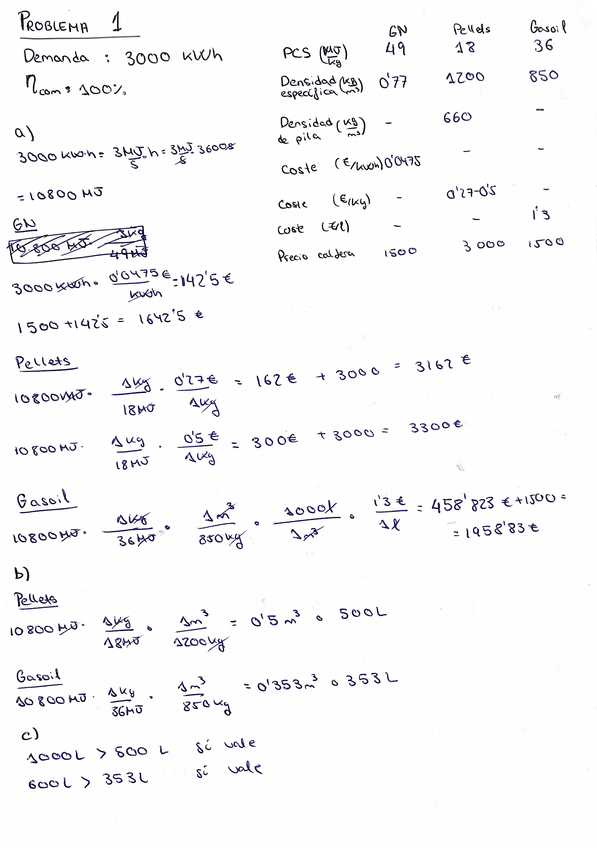 PROBLEMA 1
Demanda : 3000 kWh
ηcom = 100%
GN Pellets Gasoil
PCS (MJ/kg) 49 18 36
Densidad específica (kg/m³) 0'77 1200 850
Densidad de pila (kg/m³) - 660 -
Coste (€/kWh) 0'0475 - -
Coste (€/kg) - 0'27-0'5 -
Coste (€/l) - - 1'3
Precio caldera 1500 3000 1500
a)
3000 kWh = 3MJ/s · h = 3MJ/s · 3600s
= 10800 MJ
GN
10 800 MJ · 1kg/49MJ
3000 kWh · 0'0475 €/kWh = 142'5 €
1500 + 142'5 = 1642'5 €
Pellets
10800MJ · 1kg/18MJ · 0'27€/1kg = 162 € + 3000 = 3162 €
10800MJ · 1kg/18MJ · 0'5€/1kg = 300€ + 3000 = 3300€
Gasoil
10800MJ · 1kg/36MJ · 1m³/850kg · 1000l/1m³ · 1'3 €/1l = 458'823 € + 1500 =
= 1958'83 €
b)
Pellets
10 800 MJ · 1kg/18MJ · 1m³/1200kg = 0'5 m³ o 500L
Gasoil
10 800 MJ · 1kg/36MJ · 1m³/850kg = 0'353m³ o 353L
c)
1000L > 500 L sí vale
600L > 353L sí vale